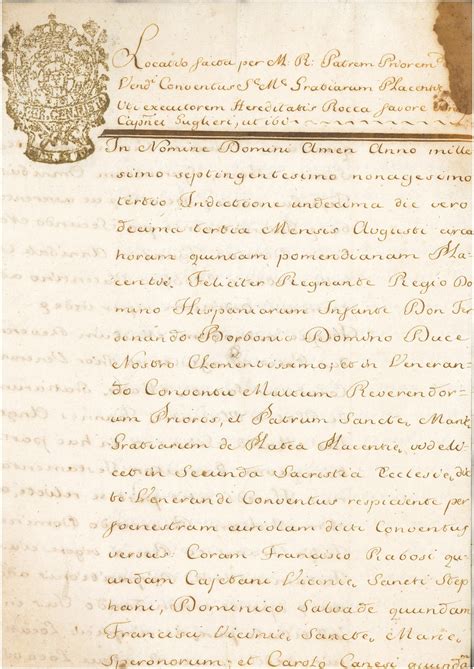 Locatio facta per M: R: Patrem Priorem
Vend: Conventus S: M: Gratiarum Placent
Uti executorem Hereditatis Rocca favore
Guglieri, ut ibi
In Nomine Domini Amen Anno mille
simo septingentesimo nonagesimo
tertio Indictione undecima die vero
decima tertia Mensis Augusti circa
horam quintam pomeridianam Pla
centię, Feliciter Regnante Regio Do
mino Hispaniarum Infante Don Fer
dinando Borbonio Domino Duce
Nostro Clementissimo; et in Veneran
do Conventu Multum Reverendor
um Prioris, et Patrum Sanctę Marię
Gratiarum de Platea Placentię, videli
cet in Secunda Sacristia Ecclesię, dic
ti Venerandi Conventus respiciente per
foenestram curiolam dicti Conventus
versus Coram Francisco Rabosi qu
ondam Cajetani Vicinię Sancti Step
hani, Dominico Salvadè quondam
Francisci Vicinię Sanctę, Marię
Speronorum; et Carolo Canesi quondam